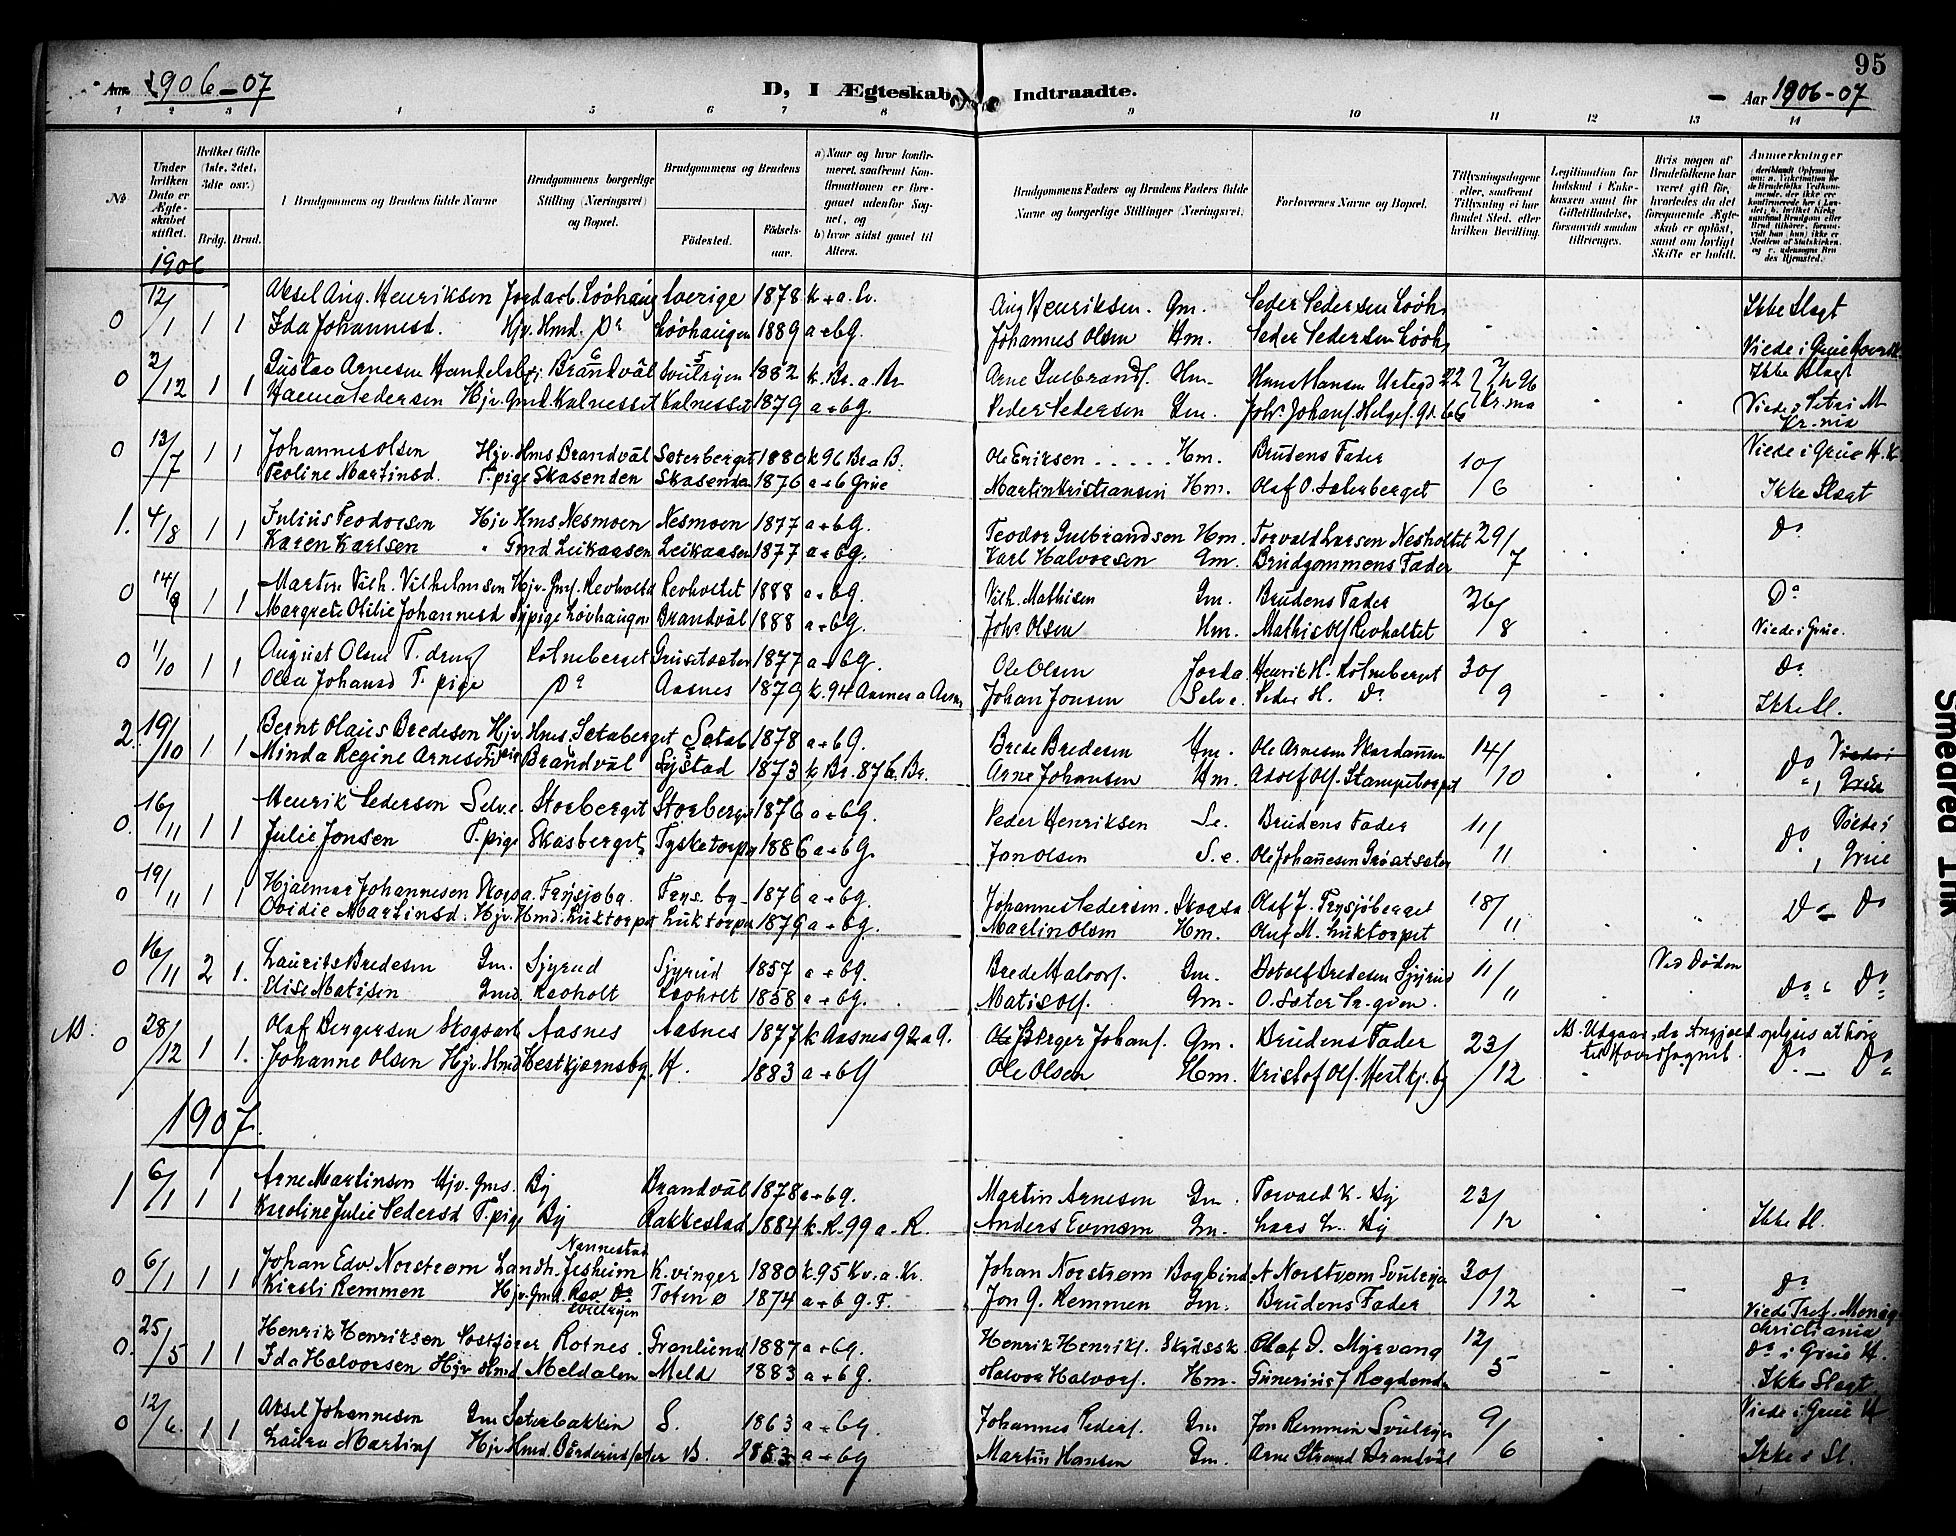 95
Aar 1906-07 D, I Ægteskab Indtraadte. Aar 1906-07
1 2 3 4 5 6 7 8 9 10 11 12 13 14
No.
Under hvilken Dato er Ægteskabet stiftet.
Hvilket Gifte (1ste, 2det, 3die osv.)
Brdg. Brud.
Brudgommens og Brudens fulde Navne
Brudgommens borgerlige Stilling (Næringsvei) og Bopæl.
Brudgommens og Brudens
Födested. Födselsaar.
a) Naar og hvor konfirmeret, saafremt Konfirmationen er foregaaet udenfor Sognet, og
b) hvor sidst gaaet til Alters.
Brudgommens Faders og Brudens Faders fulde Navne og borgerlige Stillinger (Næringsvei).
Forlovernes Navne og Bopæl.
Tillysningsdagene eller, saafremt Tillysning ei har fundet Sted, efter hvilken Bevilling.
Legitimation for Indskud i Enkekassen samt for Giftetilladelse, forsaavidt saadan tiltrænges.
Hvis nogen af Brudefolkene har været gift för, hvorledes da det foregaaende Ægteskab er oplöst, samt om lovligt Skifte er holdt.
Anmærkninger
1906
0 12/1 1 1 Aksel Aug. Henriksen Jordarb. Lövhaug Sverige 1878 k + a. Br. Aug Henriksen. Gm. Peder Pedersen Lövh Ikke Slagt
Ida Johannesd. Hjv. Hmd. Do Lövhaugen 1889 a+b G. Johannes Olsen Hm. Peder Pedersen Lövh
0 2/12 1 1 Gustav Arnesen Handelsbtj. Brandvål Svulryen 1882 k. Br. a. Br Arne Gulbrands. Hm. Hans Hansen Urtegd 22 Viede i Grue Hovedk Ikke Slagt
Hanna Pedersen Hjv. Gmd. Kalnesset Kalnesset 1879 a+b G. Peder Pedersen Gm. Johs Johans. Helges. Gd. 66 Kr.nia
0 13/7 1 1 Johannes Olsen Hjv. Hms Brandvål Sæterberget 1880 k 96 Br a B. Ole Eriksen Hm. Brudens Fader 10/6 Viede i Grue H. K
Teoline Martinsd. T. pige Skasenden Skasenden 1876 a+b Grue Martin Kristiansen Hm. Olaf O. Sæterberget Ikke Slagt
1. 4/8 1 1 Julius Teodorsen Hjv Hms Nesmoen Nesmoen 1877 a+b G. Teodor Gulbrandsen Hm. Torvald Larsen Nesholtet 29/7 Do
Karen Karlsen " Gmd Leikaasen Leikaasen 1877 a+b G. Karl Halvorsen Gm. Brudgommens Fader
0 14/9 1 1 Martin Vilh. Vilhelmsen Hjv. Gms. Revholtet Revholtet 1888 a+b G. Vilh. Mathisen Gm. Brudens Fader 26/8 Do
Margrete Otilie Johannesd Sypige Lövhaugen Brandvål 1888 a+b G. Johs Olsen Hm. Mathis Ols Revholtet Viede i Grue.
0 1/10 1 1 August Olsen T. dreng Rotneberget Gruesæter 1877 a+b G. Ole Olsen Jorda. Henrik H. Rotneberget 30/9 Do
Olea Johansd T. pige Do Aasnes 1879 k. 94 Aasnes a Aasn. Johan Jonsen Selve. Peder H. Do Ikke Sl.
2. 19/10 1 1 Bernt Olaus Bredesen Hjv. Hms. Sætaberget Sætab 1878 a+b G. Brede Bredesen Hm. Ole Arnesen Skardaasen 14/10 Do Viede i Grue
Minda Regine Arnesen T. pige Brandvål Lystad 1873 k Br. 87 b. Br. Arne Johansen Hm. Adolf Ols. Stampetorpet
0. 16/11 1 1 Henrik Pedersen Selv.e. Storberget Storberget 1876 a+b G. Peder Henriksen Se. Brudens Fader 11/11 Do Viede i Grue
Julie Jonsen T. pige Skasberget Tysketorpa 1886 a+b G. Jon Olsen S. e. Ole Johannesen Gröset sæter
0 19/11 1 1 Hjalmar Johannesen Skogsa. Frysjøbg. Frys. bg. 1876 a+b G. Johannes Pedersen. Skogsa Olaf J. Frysjöberget 18/11 Do Do
Ovidie Martinsd. Hjv. Hmd. Luktorpet Luktorpet 1876 a+b G. Martin Olsen Hm. Oluf M. Luktorpet
0 16/11 2 1. Laurits Bredesen Gm. Sjyrud Sjyrud 1857 a+b G. Brede Halvors. Gm. Botolf Bredesen Sjyrud 11/11 Ved Döden
Elise Matisen Gmd. Revholt Revholt 1858 a+b G. Matis Ols. Gm. Do Do
NB. 0 28/12 1 1. Olaf Bergersen Skogsarb Aasnes Aasnes 1877 k. Aasnes 92 a G. Ole Berger Johans. Gm. Brudens Fader 23/12 NB. Udgaar, da Angjæld. oplyses at höre til Hovedsognet.
Johanne Olsen Hjv. Hmd Hestkjærnsbg. H. 1883 a+b G Ole Olsen Hm. Kristof Ols. Hestkj. bg Do Do
1907.
1 6/1 1 1 Arne Martinsen Hjv. Gms. By Brandvål 1878 a+b G. Martin Arnesen Gm. Torvald K. By 23/12
Karoline Julie Pedersd T. pige By Rakkestad 1884 k. R. 99 a. R. Anders Evensen Gm. Lars L. By Ikke Sl.
0 6/1 1 1 Johan Edv. Norstrøm Landh. Jesheim Nannestad K.vinger 1880 k. 95 Kv. a. Kr. Johan Norstrøm Bogbind. A Norstrøm Svulrya 30/12 Do
Kirsti Remmen Hjv. Gmd. Svulryen Toten ø 1874 a+b G. T. Jon G. Remmen Gm. Brudens Fader Viede Tref. Menig Christiania
0. 25/5 1 1 Henrik Henriksen Postfører Rotnes Granlund 1887 a+b G. Henrik Henriks. Skydssk. Olaf O. Myrvang 12/5 Do i Grue H.
Ida Halvorsen Hjv Hmd Meldalen Meld 1883 a+b G. Halvor Halvors. Hm. Gunerius Rogdenda Ikke Slagt
0 12/6. 1 1 Aksel Johannesen Gm Sæterbakken S. 1863 a+b G. Johannes Peders. Gm Jon Remmen Svulryen 9/6 Viede i Grue H
Laura Martins Hjv. Hmd. sæter B. 1883 a+b G Martin Hansen Gm. Arne Strand Brandvål Ikke Sl.
Smedred Ink